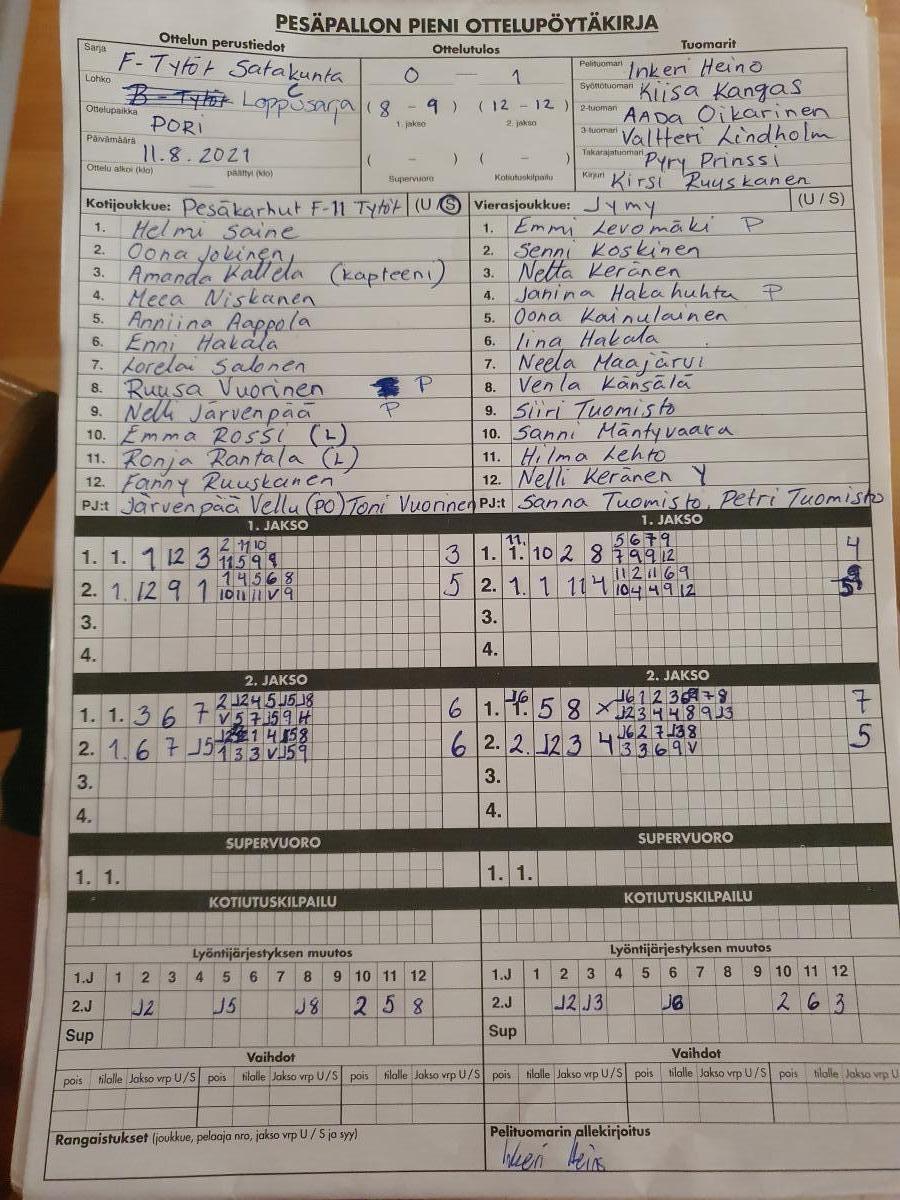 PESÄPALLON PIENI OTTELUPÖYTÄKIRJA
Ottelun perustiedot
Ottelutulos
Tuomarit
Sarja F-Tytöt Satakunta
Lohko B-Tytöt C Loppusarja
Ottelupaikka PORI
Päivämäärä 11.8.2021
Ottelu alkoi (klo) päättyi (klo)
0 — 1
(8 - 9) (12 - 12)
1. jakso 2. jakso
( - ) ( - )
Supervuoro Kotiutuskilpailu
Pelituomari Inkeri Heino
Syöttötuomari Kiisa Kangas
2-tuomari Aada Oikarinen
3-tuomari Valtteri Lindholm
Takarajatuomari Pyry Prinssi
Kirjuri Kirsi Ruuskanen
Kotijoukkue: Pesäkarhut F-11 Tytöt (U/S)
1. Helmi Saine
2. Oona Jokinen
3. Amanda Kallela (kapteeni)
4. Meea Niskanen
5. Anniina Aappola
6. Enni Hakala
7. Lorelai Salonen
8. Ruusa Vuorinen P
9. Nelli Järvenpää P
10. Emma Rossi (L)
11. Ronja Rantala (L)
12. Fanny Ruuskanen
PJ:t Järvenpää Vellu (PO) Toni Vuorinen
Vierasjoukkue: Jymy (U/S)
1. Emmi Levomäki P
2. Senni Koskinen
3. Netta Keränen
4. Janina Hakahuhta P
5. Oona Kainulainen
6. Iina Hakala
7. Neela Maajärvi
8. Venla Känsälä
9. Siiri Tuomisto
10. Sanni Mäntyvaara
11. Hilma Lehto
12. Nelli Keränen Y
PJ:t Sanna Tuomisto, Petri Tuomisto
1. JAKSO
2 11 10
1. 1. 1 12 3 11 5 9 9 3
1 4 5 6 8
2. 1. 12 9 1 10 11 11 V 9 5
3.
4.
1. JAKSO
11. 5 6 7 9
1. 1. 10 2 8 7 9 9 12 4
11 2 11 6 9
2. 1. 1 11 4 10 4 4 9 12
3.
4.
2. JAKSO
2 J2 4 5 J5 J8
1. 1. 3 6 7 V 5 7 J5 9 H 6
2. 1. 6 7 J5 1 3 3 V J5 9 6
3.
4.
2. JAKSO
J6 J6 1 2 3 6 9 7 8
1. 1. 5 8 X J2 3 4 4 8 9 J3 7
J6 2 7 J3 8
2. 2. J2 3 4 3 3 6 9 V 5
3.
4.
SUPERVUORO
1. 1.
SUPERVUORO
1. 1.
KOTIUTUSKILPAILU
KOTIUTUSKILPAILU
Lyöntijärjestyksen muutos
1.J 1 2 3 4 5 6 7 8 9 10 11 12
2.J J2 J5 J8 2 5 8
Sup
Lyöntijärjestyksen muutos
1.J 1 2 3 4 5 6 7 8 9 10 11 12
2.J J2 J3 J6 2 6 3
Sup
Vaihdot
pois tilalle Jakso vrp U/S pois tilalle Jakso vrp U/S pois tilalle Jakso vrp U/S
Vaihdot
pois tilalle Jakso vrp U/S pois tilalle Jakso vrp U/S pois tilalle Jakso vrp U
Rangaistukset (joukkue, pelaaja nro, jakso vrp U / S ja syy)
Pelituomarin allekirjoitus
Inkeri Heino